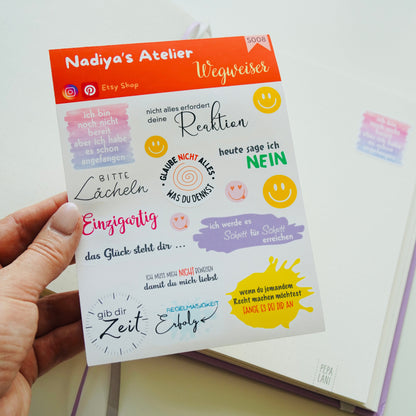 Nadiya's Atelier
S008
Wegweiser
Etsy Shop
ich bin
noch nicht
bereit
aber ich habe
es schon
angefangen
nicht alles erfordert
deine
Reaktion
BITTE
Lächeln
GLAUBE NICHT ALLES
WAS DU DENKST
heute sage ich
NEIN
Einzigartig
das Glück steht dir ...
ich werde es
Schritt für Schritt
erreichen
ICH MUSS MICH NICHT BEWEISEN
damit du mich liebst
gib dir
Zeit
REGELMÄSSIGKEIT
Erfolg
wenn du jemandem
Recht machen möchtest
FANGE ES DU DIR AN
PEPA
LANI